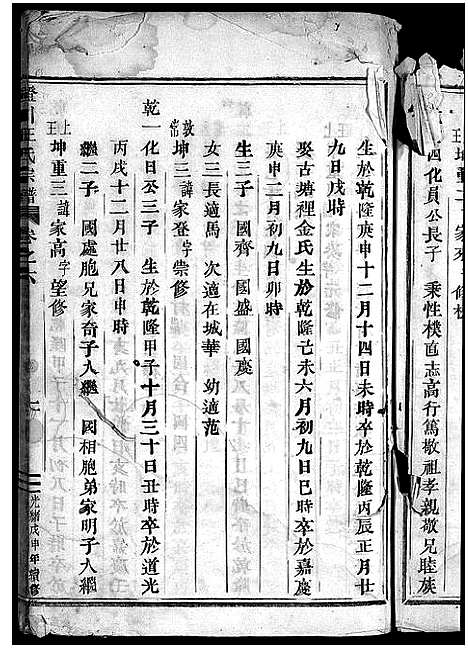 四化員公長子 秉性樸直志高行篤敬祖孝親敬兄睦族
生於乾隆庚申十二月十四日未時卒於乾隆丙辰正月廿
九日戌時
娶古塘裡金氏生於乾隆己未六月初九日巳時卒於嘉慶
庚申二月初九日卯時
生三子 國齊 國盛 國慶
女三長適馬 次適在城華 幼適范
敦常坤三諱家登字崇修
乾一化日公三子 生於乾隆甲子十月三十日丑時卒於道光
丙戌十二月廿八日申時
繼二子 國處胞兄家奇子入繼 國相胞弟家明子入繼
上王坤重三諱家高字望修
川王氏宗譜 卷之六
光緒戊申年續修